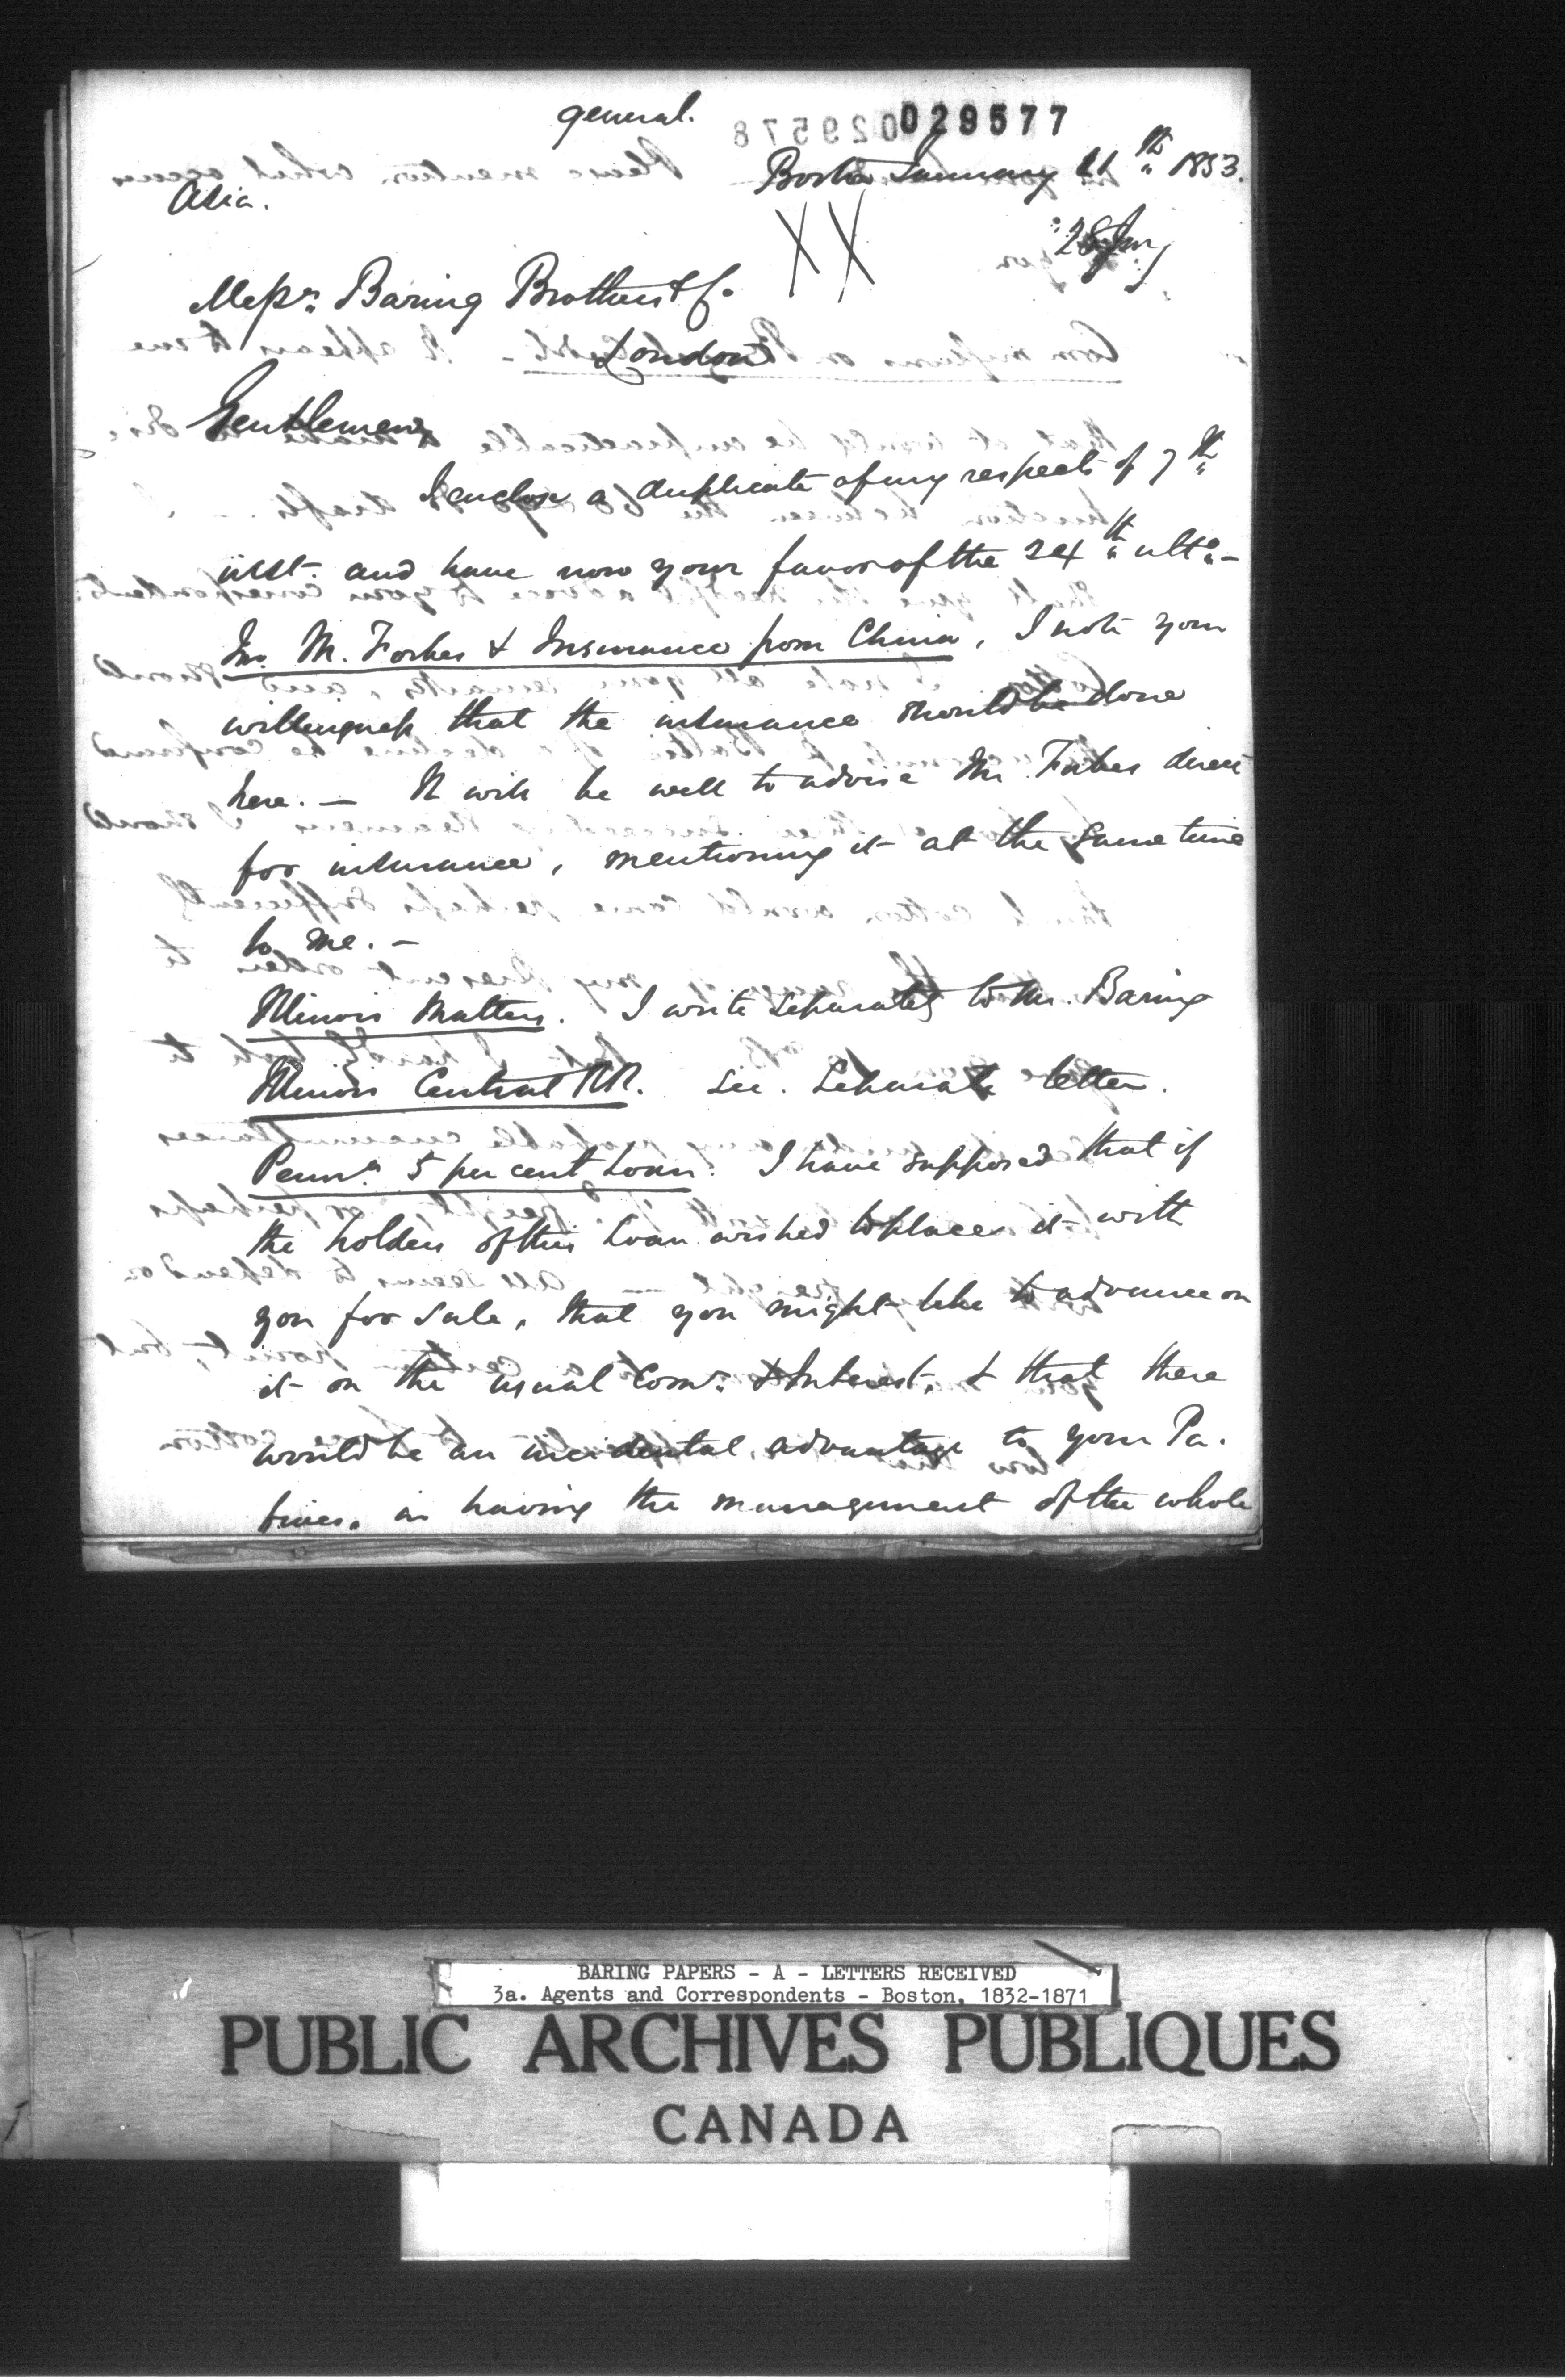 general.
029577
Boston January 11th 1853.
Asia.
28 Jany
XX
Messrs Baring Brothers & Co
London
Gentlemen
I enclose a duplicate of my respects of 7th
inst. and have now your favor of the 24th ulto. -
Jno. M. Forbes & Insurance from China, I note your
willingness that the insurance should be done
here. - It will be well to advise Mr. Forbes direct
for insurance, mentioning it at the same time
to me. -
Illinois Matters. I write separately to Mr. Baring
Illinois Central RR. See. Separate letter.
Penna. 5 per cent Loan. I have supposed that if
the holders of this Loan wished to place it with
you for sale, that you might like to advance on
it on the usual Comn. & Interest, & that there
would be an incidental advantage to your Pa.
fives, in having the management of the whole
BARING PAPERS - A - LETTERS RECEIVED
3a. Agents and Correspondents - Boston, 1832-1871
PUBLIC ARCHIVES PUBLIQUES
CANADA